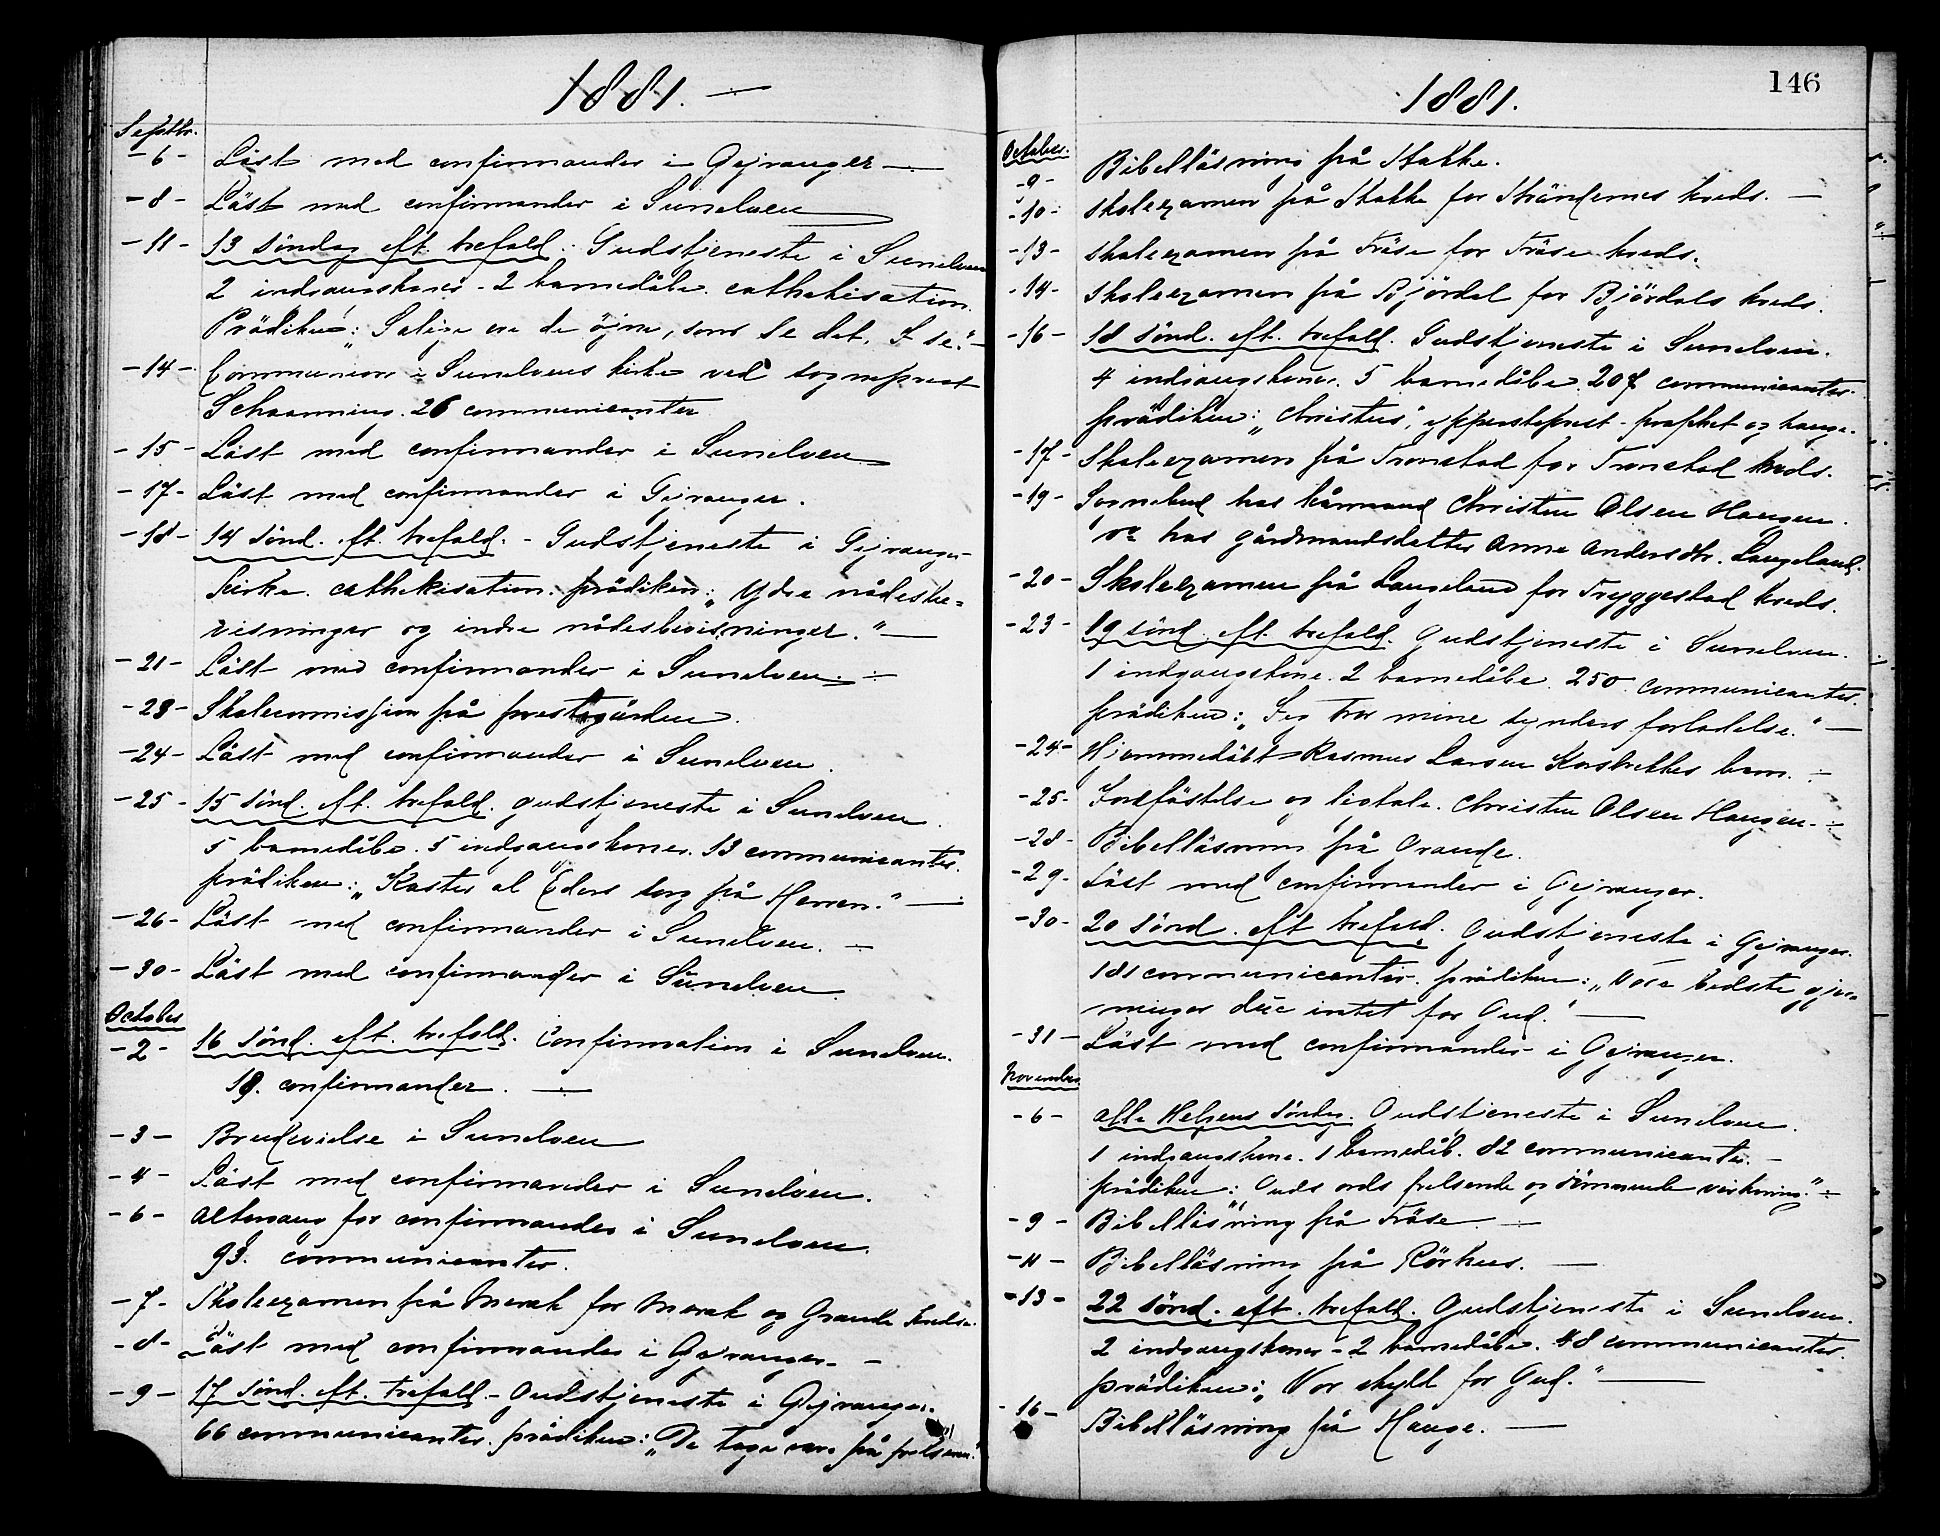 1881. —
Septbr.
- 6 - Läst med confirmander i Gejranger —
- 8 - Läst med confirmander i Sunelven
- 11 - 13 söndag eft. trefold. Gudstjeneste i Sunelven
2 indgangskoner - 2 barnedåbe. cathekisation.
Prädiken: „Salige ere de öjne, som se det, I se."-
- 14 - Communion i Sunelvens kirke ved sogneprest
Schaanning. 26 communicanter
- 15 - Läst med confirmander i Sunelven
- 17 - Läst med confirmander i Gejranger.
- 18 - 14 sönd. eft. trefold. - Gudstjeneste i Gejranger
kirke. cathekisation. prädiken: „Ydre nådesbe=
visninger og indre nådesbevisninger." —
- 21 - Läst med confirmander i Sunelven. -
- 23 - Skolecommission på prestegården.
- 24 - Läst med confirmander i Sunelven.
- 25 - 15 sönd. eft. trefold. gudstjeneste i Sunelven.
5 barnedåbe. 5 indgangskoner. 13 communicanter.
prädiken: „Kaster al Eders sorg på Herren." —
- 26 - Läst med confirmander i Sunelven. —
- 30 - Läst med confirmander i Sunelven.
October
- 2 - 16 sönd. eft. trefold. Confirmation i Sunelven.
18. confirmander. —
- 3 - Brudevielse i Sunelven
- 4 - Läst med confirmander i Sunelven.
- 6 - Altergang for confirmander i Sunelven.
93. communicanter.
- 7 - Skoleexamen på Merak for Merak og Grande kredse.
- 8 - Läst med confirmander i Gejranger. -
- 9 - 17 sönd. eft. trefold. - Gudstjeneste i Gejranger.
66 communicanter. prädiken: „De toge vare på
1881.
146
October.
- 9 - Bibelläsning på Stakke.
- 10 - Skoleexamen på Stakke for Strändernes kreds. —
- 13 - Skoleexamen på Fräse for Fräse kreds.
- 14 - Skoleexamen på Björdal for Björdals kreds.
- 16 - 18 sönd. eft. trefold. Gudstjeneste i Sunelven.
4 indgangskoner. 5 barnedåbe. 207 communicanter.
prädiken: „Christus", ypperstepræst - prophet og konge.
- 17 - Skoleexamen på Tronstad for Tronstad kreds.
- 19 - Sognebud hos kårmand Christen Olsen Haugen.
og hos gårdmandsdatter Anne Andersdtr. Langeland.
- 20 - Skoleexamen på Langeland for Tryggestad kreds.
- 23 - 19 sönd. eft. trefold. Gudstjeneste i Sunelven.
1 indgangskone. 2 barnedåbe. 250. communicanter.
prädiken: „Jeg tror mine synders forladelse." —
- 24 - Hjemmedöbt Rasmus Larsen Korsbrekkes barn. -
- 25 - Jordfästelse og ligtale. Christen Olsen Haugen. -
- 28 - Bibelläsning på Grande.
- 29 - Läst med confirmander i Gejranger.
- 30 - 20 sönd. eft. trefold. Gudstjeneste i Gejranger.
181 communicanter. prädiken: „Vore bedste gjer=
ninger due intet for Gud." —
- 31 - Läst med confirmander i Gejranger.
November
- 6 - Alle Helgens söndag. Gudstjeneste i Sunelven.
1 indgangskone. 1 barnedåb. 82 communicanter. -
prädiken: „Guds ords frelsende og dömmende virkning." -
- 9 - Bibelläsning på Fräse. —
- 11 - Bibelläsning på Rörhus. —
- 13 - 22 sönd. eft. trefold. Gudstjeneste i Sunelven.
2 indgangskoner - 2 barnedåbe. 48 communicanter.
prädiken: „Vor skyld for Gud." —
- 16 - Bibelläsning på Hauge. —